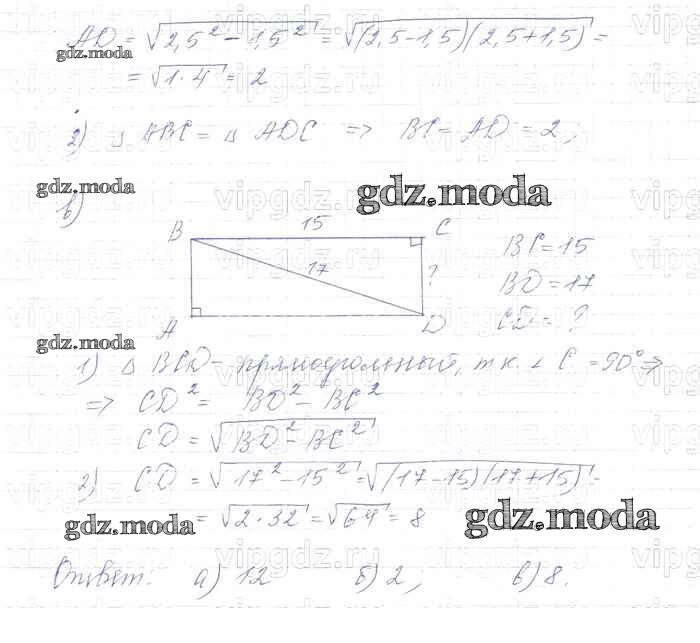 AD = √(2,5² - 1,5²) = √((2,5-1,5)(2,5+1,5)) =
gdz.moda
= √(1·4) = 2
2) △ ABC = △ ADC => BC = AD = 2;
gdz.moda
gdz.moda
в)
B 15 C
17
?
A D
BC = 15
BD = 17
CD = ?
gdz.moda
1) △ BCD - прямоугольный, т.к. ∠ C = 90° =>
=> CD² = BD² - BC²
CD = √(BD² - BC²)
2) CD = √(17² - 15²) = √((17-15)(17+15)) =
gdz.moda
= √(2·32) = √64 = 8
gdz.moda
Ответ: а) 12 б) 2; в) 8.
vipgdz.ru